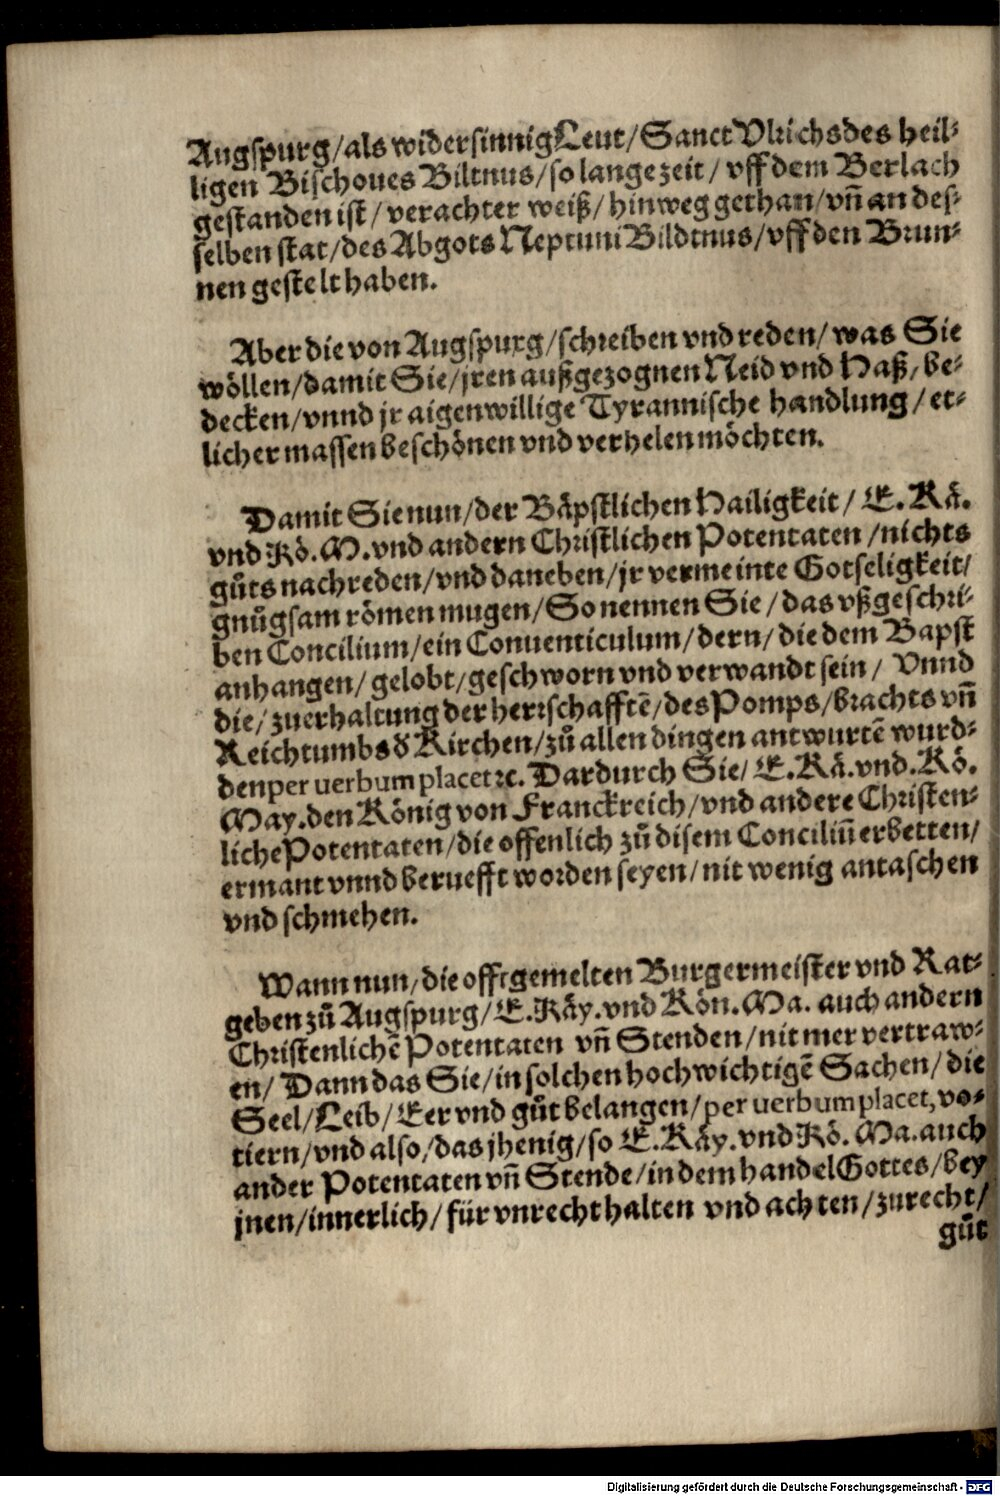 Augspurg/als widersinnig Leut/Sanct Vlrichs des heil-
ligen Bischoues Biltnus/so lange zeit/ vff dem Berlach
gestanden ist/ verachter weiß/ hinweg gethan/vn̄ an des-
selben stat/des Abgots Neptuni Bildtnus/vff den Brun-
nen gestelt haben.
Aber die von Augspurg/schreiben vnd reden/ was Sie
wöllen/damit Sie/jren außgezognen Neid vnd Haß/ be-
decken/vnnd jr aigenwillige Tyrannische handlung/ et-
licher massen beschönen vnd verhelen möchten.
Damit Sie nun/der Bäpstlichen Hailigkeit/ E. Kä.
vnd Kö. M. vnd andern Christlichen Potentaten /nichts
gůts nachreden/vnd daneben/jr vermeinte Gotseligkeit/
gnůgsam römen mugen/So nennen Sie/das vßgeschri-
ben Concilium/ein Conuenticulum/dern/die dem Bapst
anhangen/gelobt/geschworn vnd verwandt sein/ Vnnd
die/zuerhaltung der herrschafftē/des Pomps/brachts vn̄
Reichtumbs d̕ Kirchen/zů allen dingen antwurtē wurd-
den per uerbum placet ꝛc. Dardurch Sie/ E. Kä. vnd. Kö.
May. den König von Franckreich/vnd andere Christen-
liche Potentaten/die offenlich zů disem Conciliū erbetten/
ermant vnnd beruefft worden seyen/nit wenig antaschen
vnd schmehen.
Wann nun/die offtgemelten Burgermeister vnd Rat-
geben zů Augspurg/E. Käy. vnd Kön. Ma. auch andern
Christenlichē Potentaten vn̄ Stenden/nit mer vertraw-
en/ Dann das Sie/in solchen hochwichtigē Sachen/die
Seel/Leib/Eer vnd gůt belangen/per uerbum placet, vo-
tiern/vnd also/das jhenig/so E. Käy. vnd Kö. Ma. auch
ander Potentaten vn̄ Stende/in dem handel Gottes/bey
jnen/innerlich/für vnrecht halten vnd achten/zurecht/
gůt
Digitalisierung gefördert durch die Deutsche Forschungsgemeinschaft - DFG